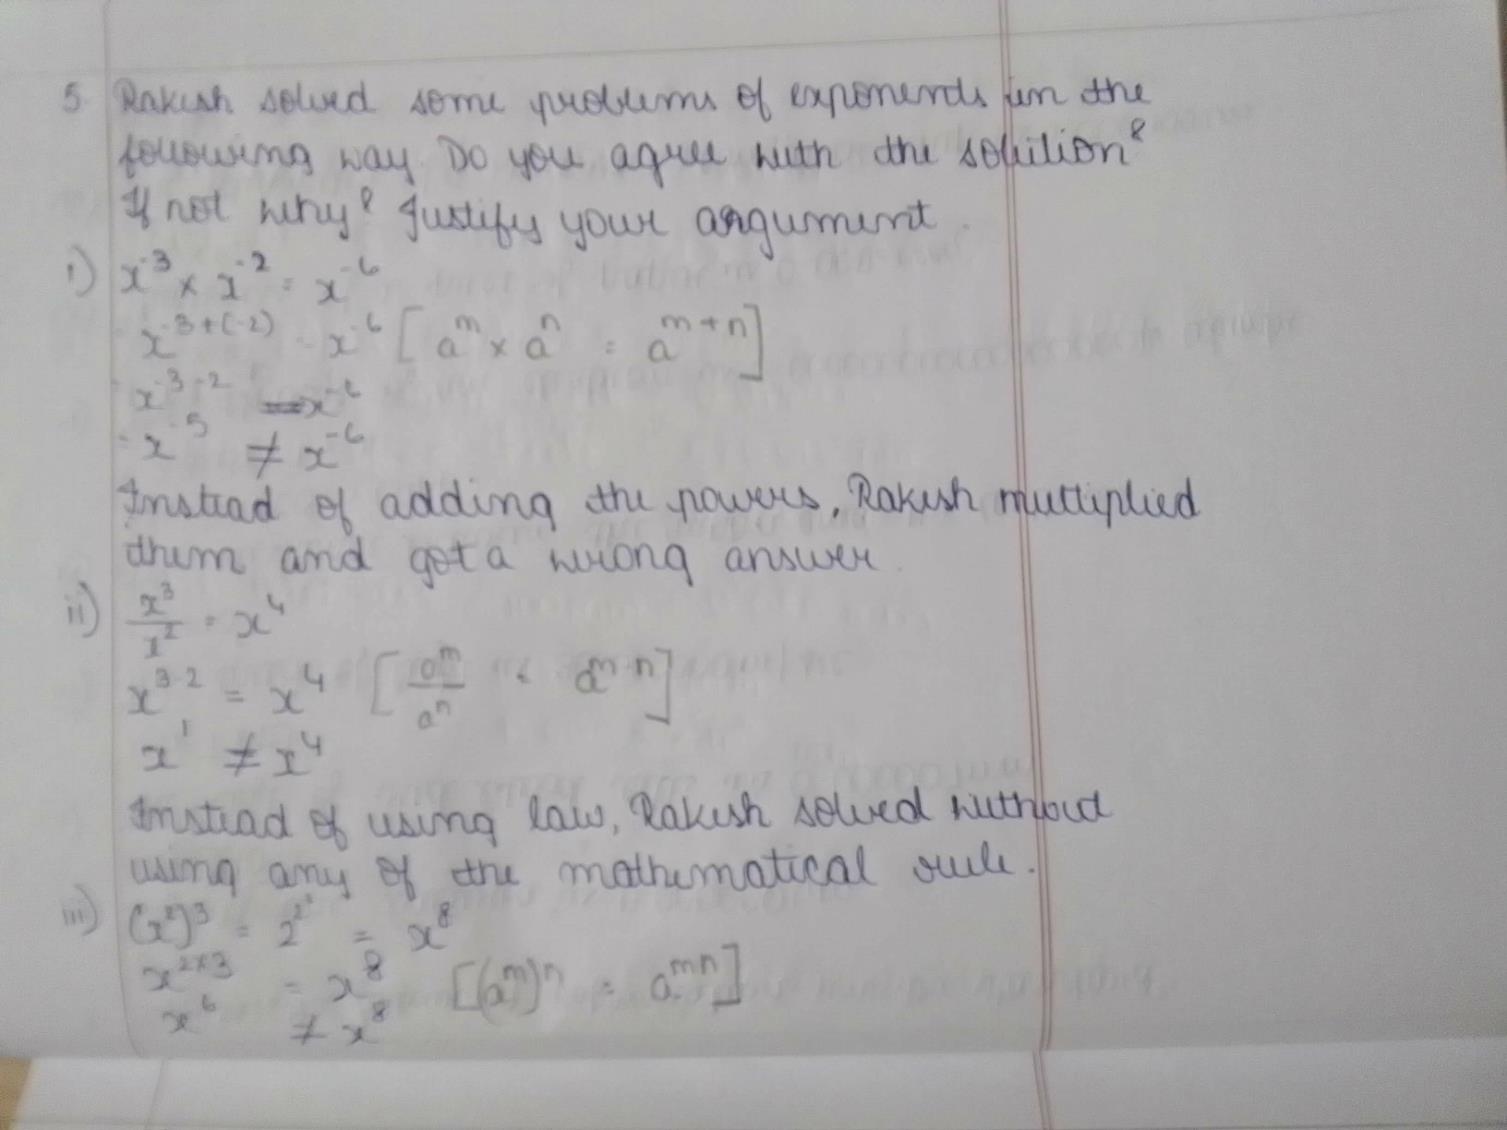 5. Rakish solved some problems of exponends in the
following way. Do you agree with the solution?
If not why? Justify your argument.
i) x⁻³ × x⁻² = x⁻⁶
x⁻³⁺⁽⁻²⁾ = x⁻⁶ [aᵐ × aⁿ = aᵐ⁺ⁿ]
x⁻³⁻² = x⁻⁶
x⁻⁵ ≠ x⁻⁶
Instead of adding the powers, Rakish multiplied
them and got a wrong answer.
ii) x³/x² = x⁴
x³⁻² = x⁴ [aᵐ/aⁿ = aᵐ⁻ⁿ]
x¹ ≠ x⁴
Instead of using law, Rakish solved without
using any of the mathematical rule.
iii) (x²)³ = = x⁸
x²ˣ³ = x⁸ [(aᵐ)ⁿ = aᵐⁿ]
x⁶ ≠ x⁸